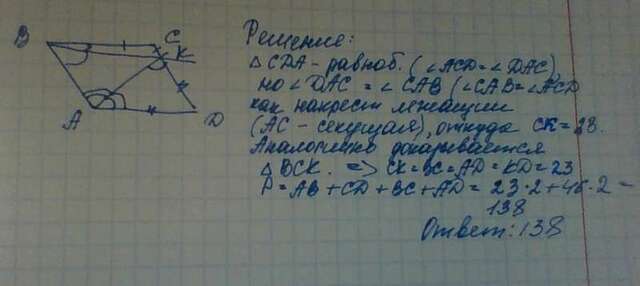 B
C
K
A
D
Решение:
△CDA - равноб. (∠ACD = ∠DAC)
но ∠DAC = ∠CAB (∠CAB = ∠ACD
как накрест лежащии
(AC - секущая), откуда CK = 23.
Аналогично доказывается
△BCK. => CK = BC = AD = KD = 23
P = AB + CD + BC + AD = 23·2 + 46·2 =
138
Ответ: 138